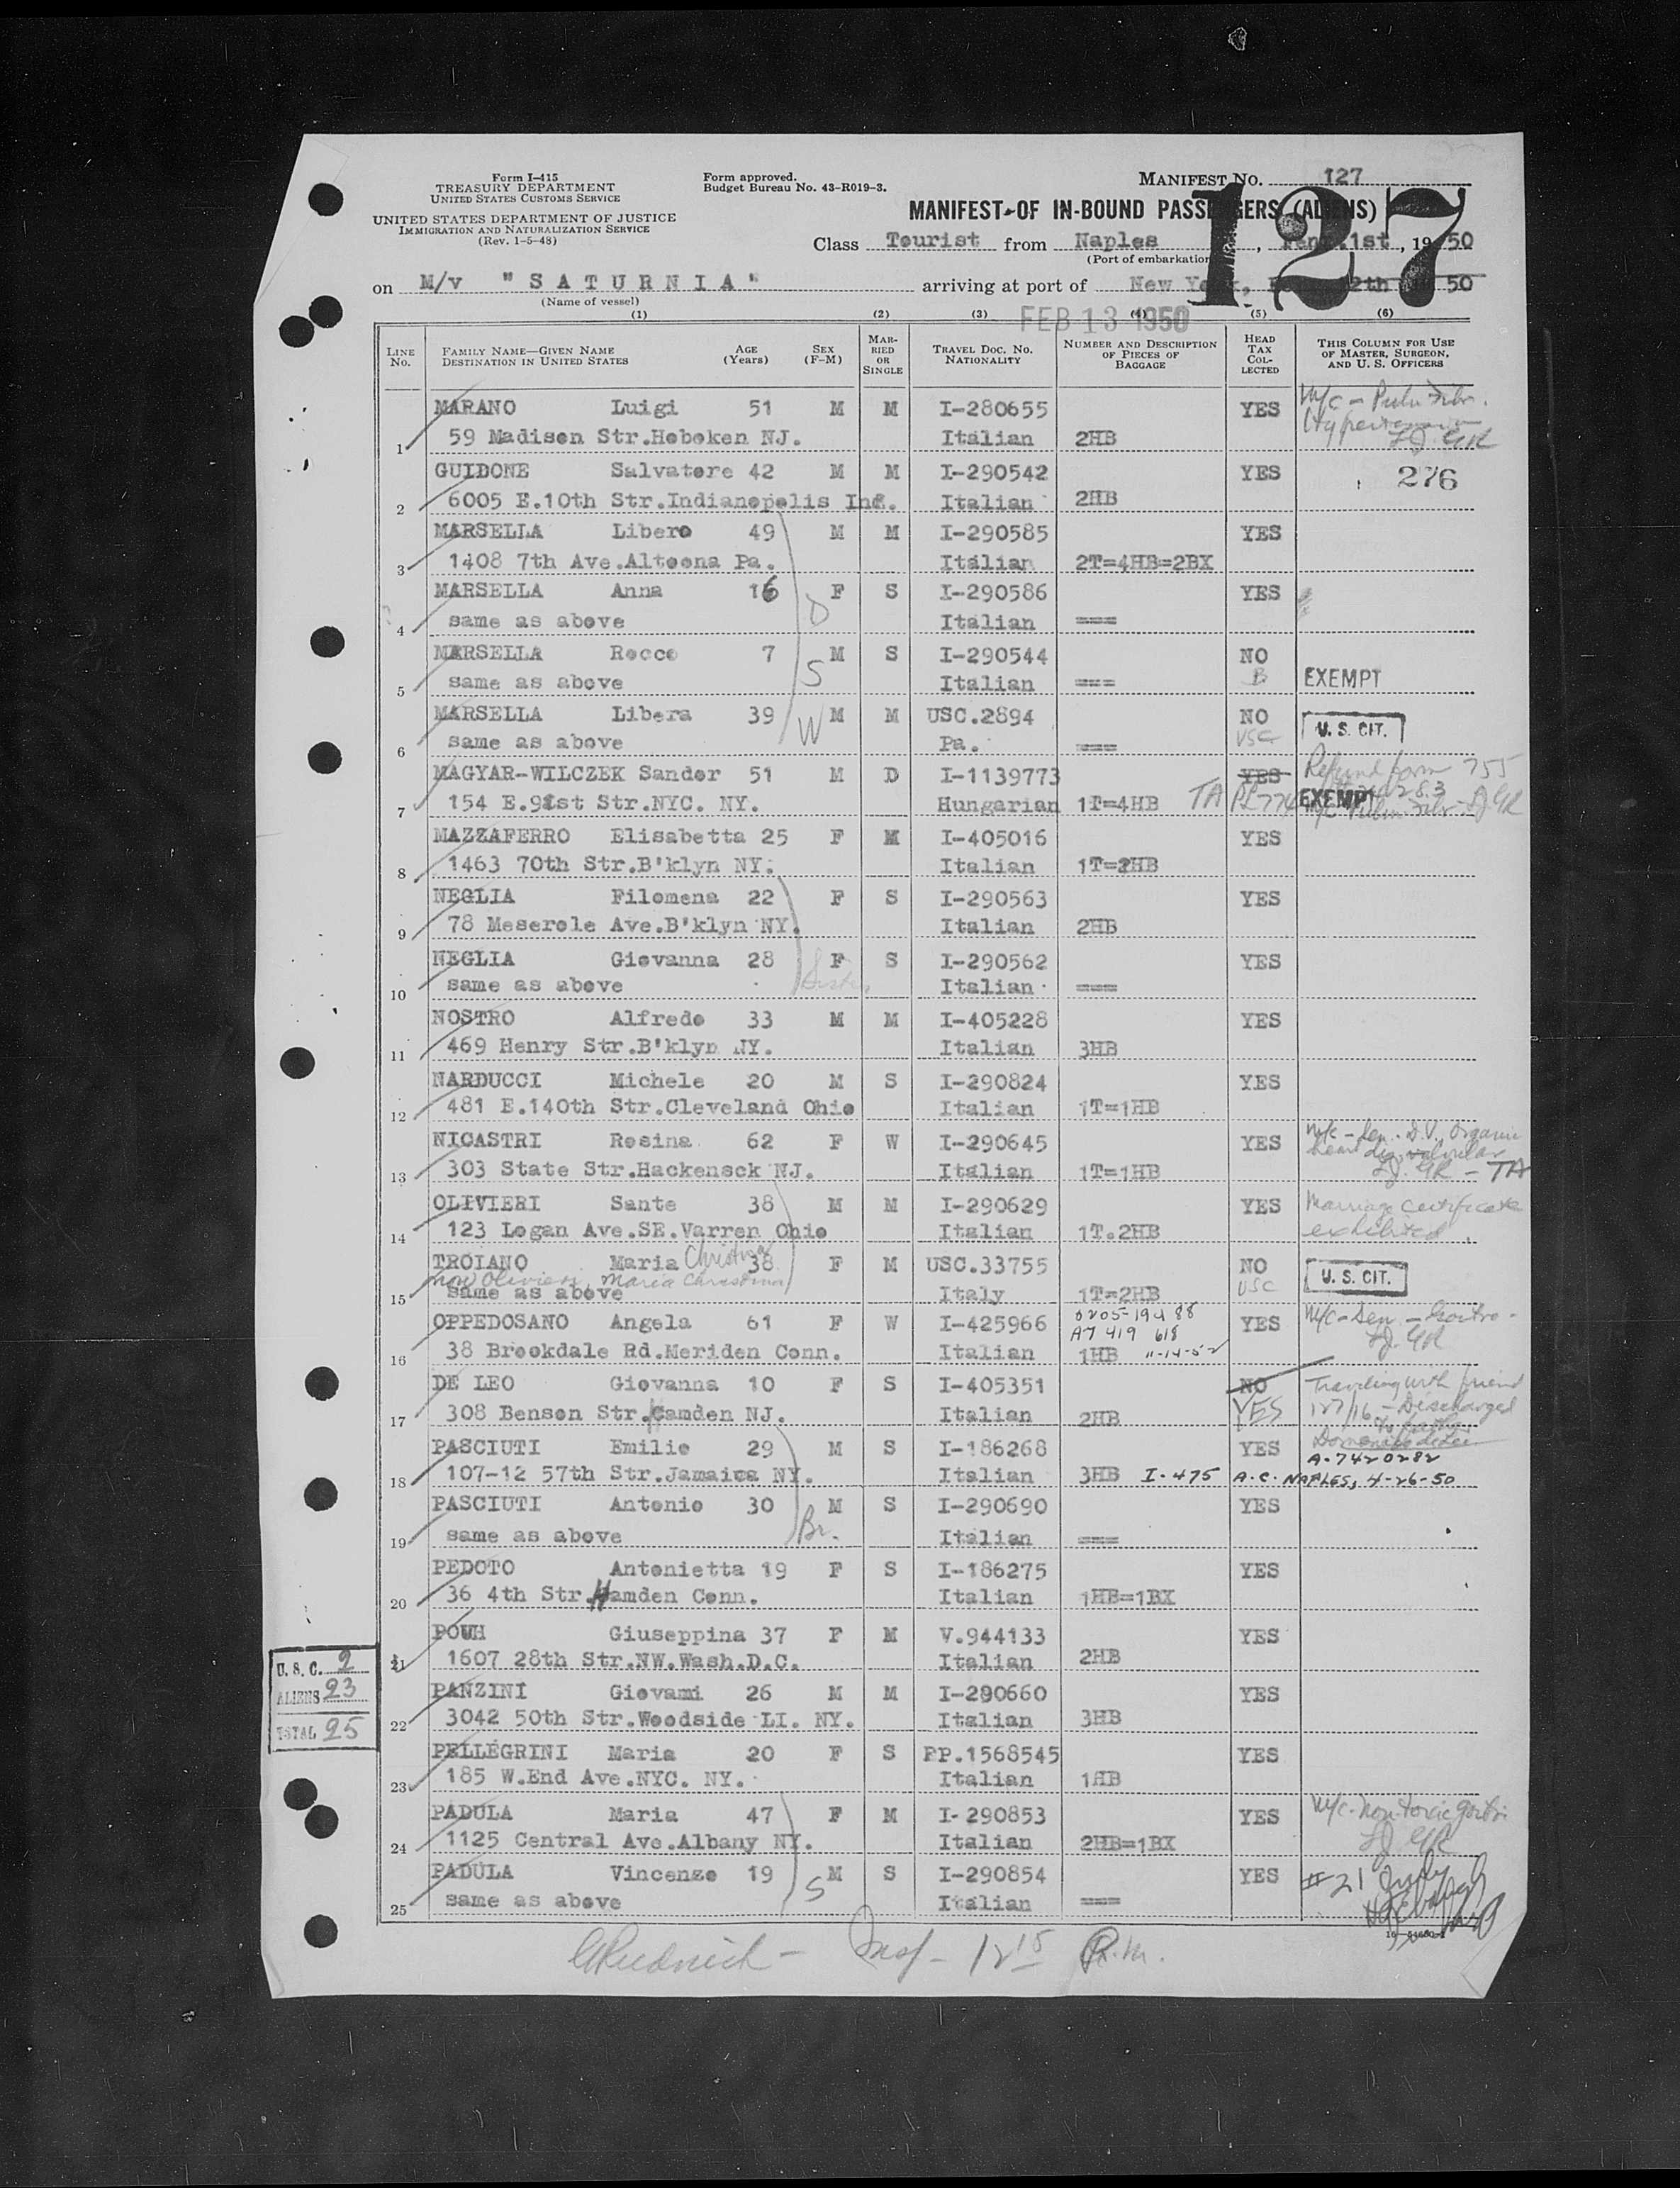 Form I-415
TREASURY DEPARTMENT
UNITED STATES CUSTOMS SERVICE
UNITED STATES DEPARTMENT OF JUSTICE
IMMIGRATION AND NATURALIZATION SERVICE
(Rev. 1-5-48)
Form approved.
Budget Bureau No. 43-R019-3.
MANIFEST NO. 127
127
MANIFEST OF IN-BOUND PASSENGERS (ALIENS)
Class Tourist from Naples, 1st, 1950
(Port of embarkation)
on M/v "SATURNIA" arriving at port of New York, 12th 50
(Name of vessel)
FEB 13 1950
(1) (2) (3) (4) (5) (6)
LINE No. FAMILY NAME—GIVEN NAME DESTINATION IN UNITED STATES AGE (Years) SEX (F-M) MARRIED OR SINGLE TRAVEL DOC. NO. NATIONALITY NUMBER AND DESCRIPTION OF PIECES OF BAGGAGE HEAD TAX COLLECTED THIS COLUMN FOR USE OF MASTER, SURGEON, AND U. S. OFFICERS
MARANO Luigi 51 M M I-280655 YES
1 59 Madison Str.Hoboken NJ. Italian 2HB
GUIDONE Salvatore 42 M M I-290542 YES 276
2 6005 E.10th Str.Indianopolis Ind. Italian 2HB
MARSELLA Libero 49 M M I-290585 YES
3 1408 7th Ave.Altoona Pa. Italian 2T=4HB=2BX
MARSELLA Anna 16 D F S I-290586 YES
4 same as above Italian ===
MARSELLA Rocco 7 M S I-290544 NO
5 same as above S Italian === B EXEMPT
MARSELLA Libera 39 W M M USC.2894 NO U. S. CIT.
6 same as above Pa. === USC
MAGYAR-WILCZEK Sandor 51 M D I-1139773 YES Refund form 755
7 154 E.91st Str.NYC. NY. Hungarian 1T=4HB TA EXEMPT
MAZZAFERRO Elisabetta 25 F M I-405016 YES
8 1463 70th Str.B'klyn NY. Italian 1T=2HB
NEGLIA Filomena 22 F S I-290563 YES
9 78 Meserole Ave.B'klyn NY. Italian 2HB
NEGLIA Giovanna 28 F S I-290562 YES
10 same as above Sister Italian ===
NOSTRO Alfredo 33 M M I-405228 YES
11 469 Henry Str.B'klyn NY. Italian 3HB
NARDUCCI Michele 20 M S I-290824 YES
12 481 E.140th Str.Cleveland Ohio Italian 1T=1HB
NICASTRI Rosina 62 F W I-290645 YES
13 303 State Str.Hackensck NJ. Italian 1T=1HB TA
OLIVIERI Sante 38 M M I-290629 YES Marriage certificate
14 123 Logan Ave.SE.Varren Ohio Italian 1T.2HB exhibited
TROIANO Maria Christina 38 F M USC.33755 NO U. S. CIT.
now Olivieri, Maria Christina
15 same as above Italy 1T=2HB USC
OPPEDOSANO Angela 61 F W I-425966 0205-19488 YES
A7 419 618
16 38 Brookdale Rd.Meriden Conn. Italian 1HB 11-14-52
DE LEO Giovanna 10 F S I-405351 NO Traveling with friend
17 308 Benson Str.Camden NJ. Italian 2HB YES 127/16 - Discharged to father
PASCIUTI Emilio 29 M S I-186268 YES A-7420282
18 107-12 57th Str.Jamaica NY. Italian 3HB I-475 A.C. NAPLES, 4-26-50
PASCIUTI Antonio 30 M S I-290690 YES
19 same as above Br. Italian ===
PEDOTO Antonietta 19 F S I-186275 YES
20 36 4th Str.Hamden Conn. Italian 1HB=1BX
POUH Giuseppina 37 F M V.944133 YES
21 1607 28th Str.NW.Wash.D.C. Italian 2HB
PANZINI Giovami 26 M M I-290660 YES
22 3042 50th Str.Woodside LI. NY. Italian 3HB
PELLEGRINI Maria 20 F S PP.1568545 YES
23 185 W.End Ave.NYC. NY. Italian 1HB
PADULA Maria 47 F M I-290853 YES
24 1125 Central Ave.Albany NY. Italian 2HB=1BX
PADULA Vincenzo 19 M S I-290854 YES #21
25 same as above S Italian ===
U. S. C. 2
ALIENS 23
TOTAL 25
Insp - 12 15 P.M.